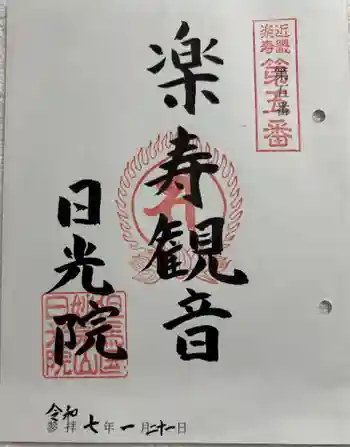 近畿楽寿
第五番
第五番
楽寿観音
日光院
令和
参拝 七年一月二十一日